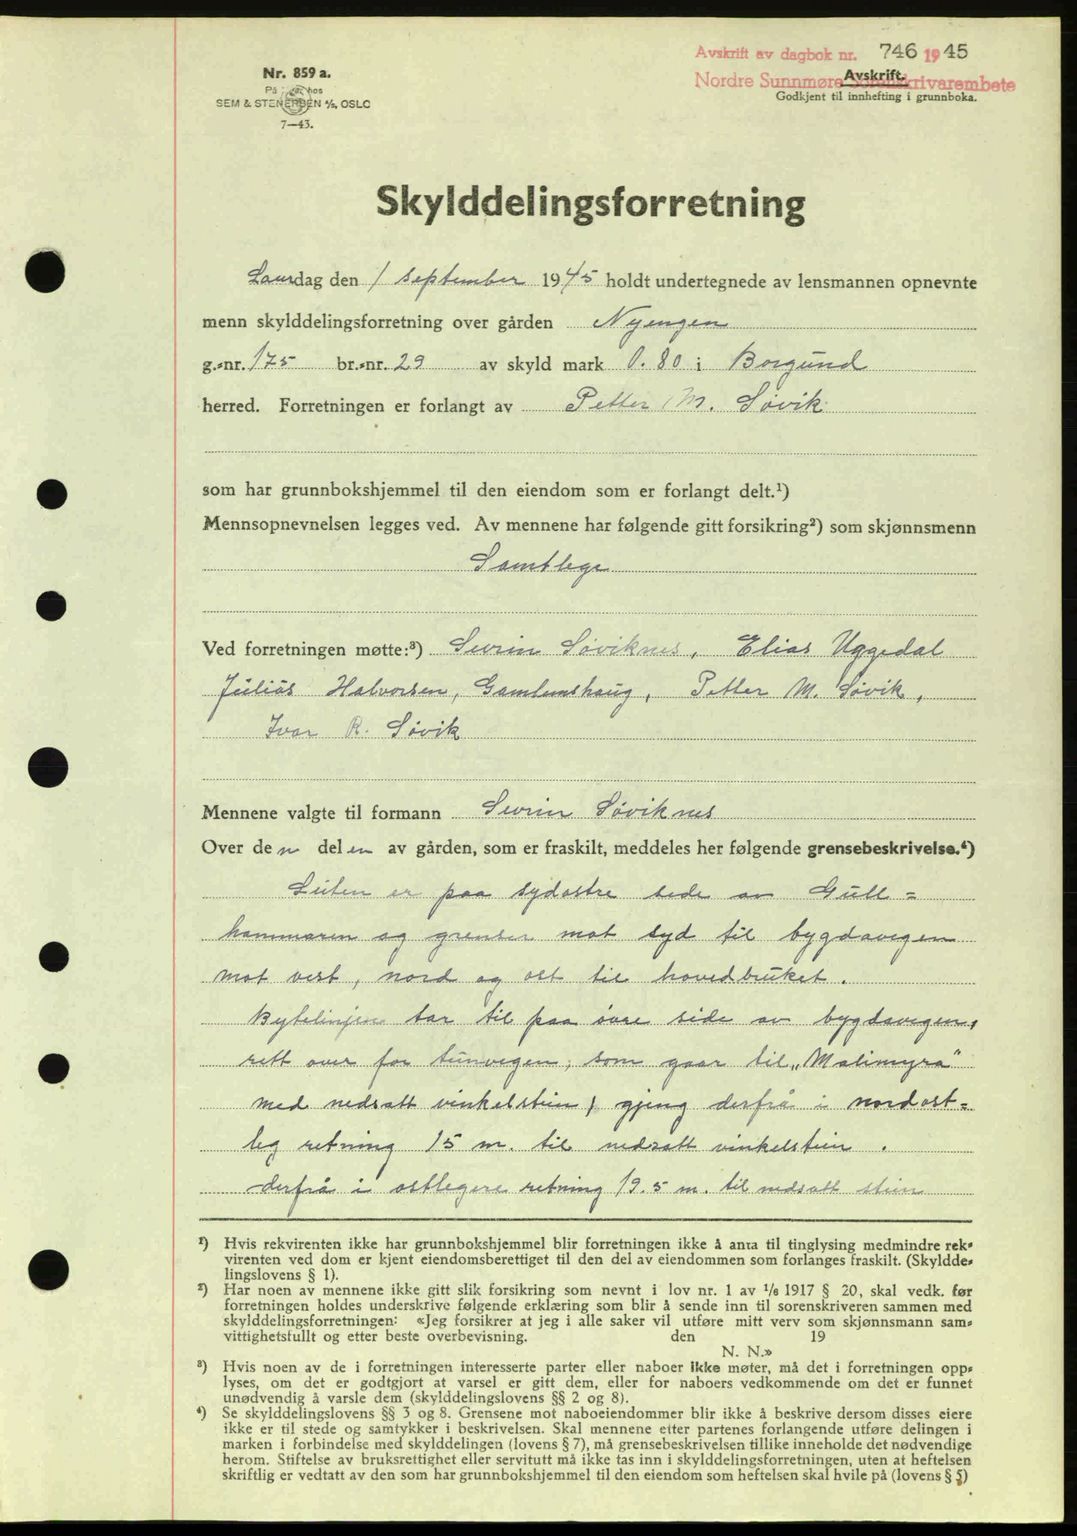 Avskrift av dagbok nr. 746 1945
Nordre Sunnmøre Sorenskrivarembete
Avskrift.
Godkjent til innhefting i grunnboka.
Nr. 859 a.
På hos
SEM & STENERSEN A/S, OSLO
7—43.
Skylddelingsforretning
Laurdag den 1 september 1945 holdt undertegnede av lensmannen opnevnte
menn skylddelingsforretning over gården Nyengen
g.-nr. 175 br.-nr. 29 av skyld mark 0.80 i Borgund
herred. Forretningen er forlangt av Petter M. Søvik
som har grunnbokshjemmel til den eiendom som er forlangt delt.¹)
Mennsopnevnelsen legges ved. Av mennene har følgende gitt forsikring²) som skjønnsmenn
Samtlege
Ved forretningen møtte:³) Sevrin Søviknes, Elias Uggedal
Julius Halvorsen, Gamlemshaug, Petter M. Søvik,
Ivar R. Søvik
Mennene valgte til formann Sevrin Søviknes
Over den delen av gården, som er fraskilt, meddeles her følgende grensebeskrivelse.⁴)
Luten er paa sydøstre side av Gull=
hammaren og grenser mot syd til bygdavegen
mot vest, nord og ost til hovedbruket.
Bytelinjen tar til paa øvre side av bygdavegen,
rett over for tunvegen, som gaar til „Malimyra"
med nedsatt vinkelstein, gjeng derfrå i nordost=
leg retning 15 m. til nedsatt vinkelstein.
derfrå i ostlegere retning 19.5 m. til nedsatt stein
¹) Hvis rekvirenten ikke har grunnbokshjemmel blir forretningen ikke å anta til tinglysing medmindre rek-
virenten ved dom er kjent eiendomsberettiget til den del av eiendommen som forlanges fraskilt. (Skyldde-
lingslovens § 1).
²) Har noen av mennene ikke gitt slik forsikring som nevnt i lov nr. 1 av 1/6 1917 § 20, skal vedk. før
forretningen holdes underskrive følgende erklæring som blir å sende inn til sorenskriveren sammen med
skylddelingsforretningen: «Jeg forsikrer at jeg i alle saker vil utføre mitt verv som skjønnsmann sam-
vittighetsfullt og etter beste overbevisning. den 19
N. N.»
³) Hvis noen av de i forretningen interesserte parter eller naboer ikke møter, må det i forretningen opp-
lyses, om det er godtgjort at varsel er gitt dem, eller for naboers vedkommende om det er funnet
unødvendig å varsle dem (skylddelingslovens §§ 2 og 8).
⁴) Se skylddelingslovens §§ 3 og 8. Grensene mot naboeiendommer blir ikke å beskrive dersom disses eiere
ikke er til stede og samtykker i beskrivelsen. Skal mennene etter partenes forlangende utføre delingen i
marken i forbindelse med skylddelingen (lovens § 7), må grensebeskrivelsen tillike inneholde det nødvendige
herom. Stiftelse av bruksrettighet eller servitutt må ikke tas inn i skylddelingsforretningen, uten at heftelsen
skriftlig er vedtatt av den som har grunnbokshjemmel til den eiendom som heftelsen skal hvile på (lovens § 5)